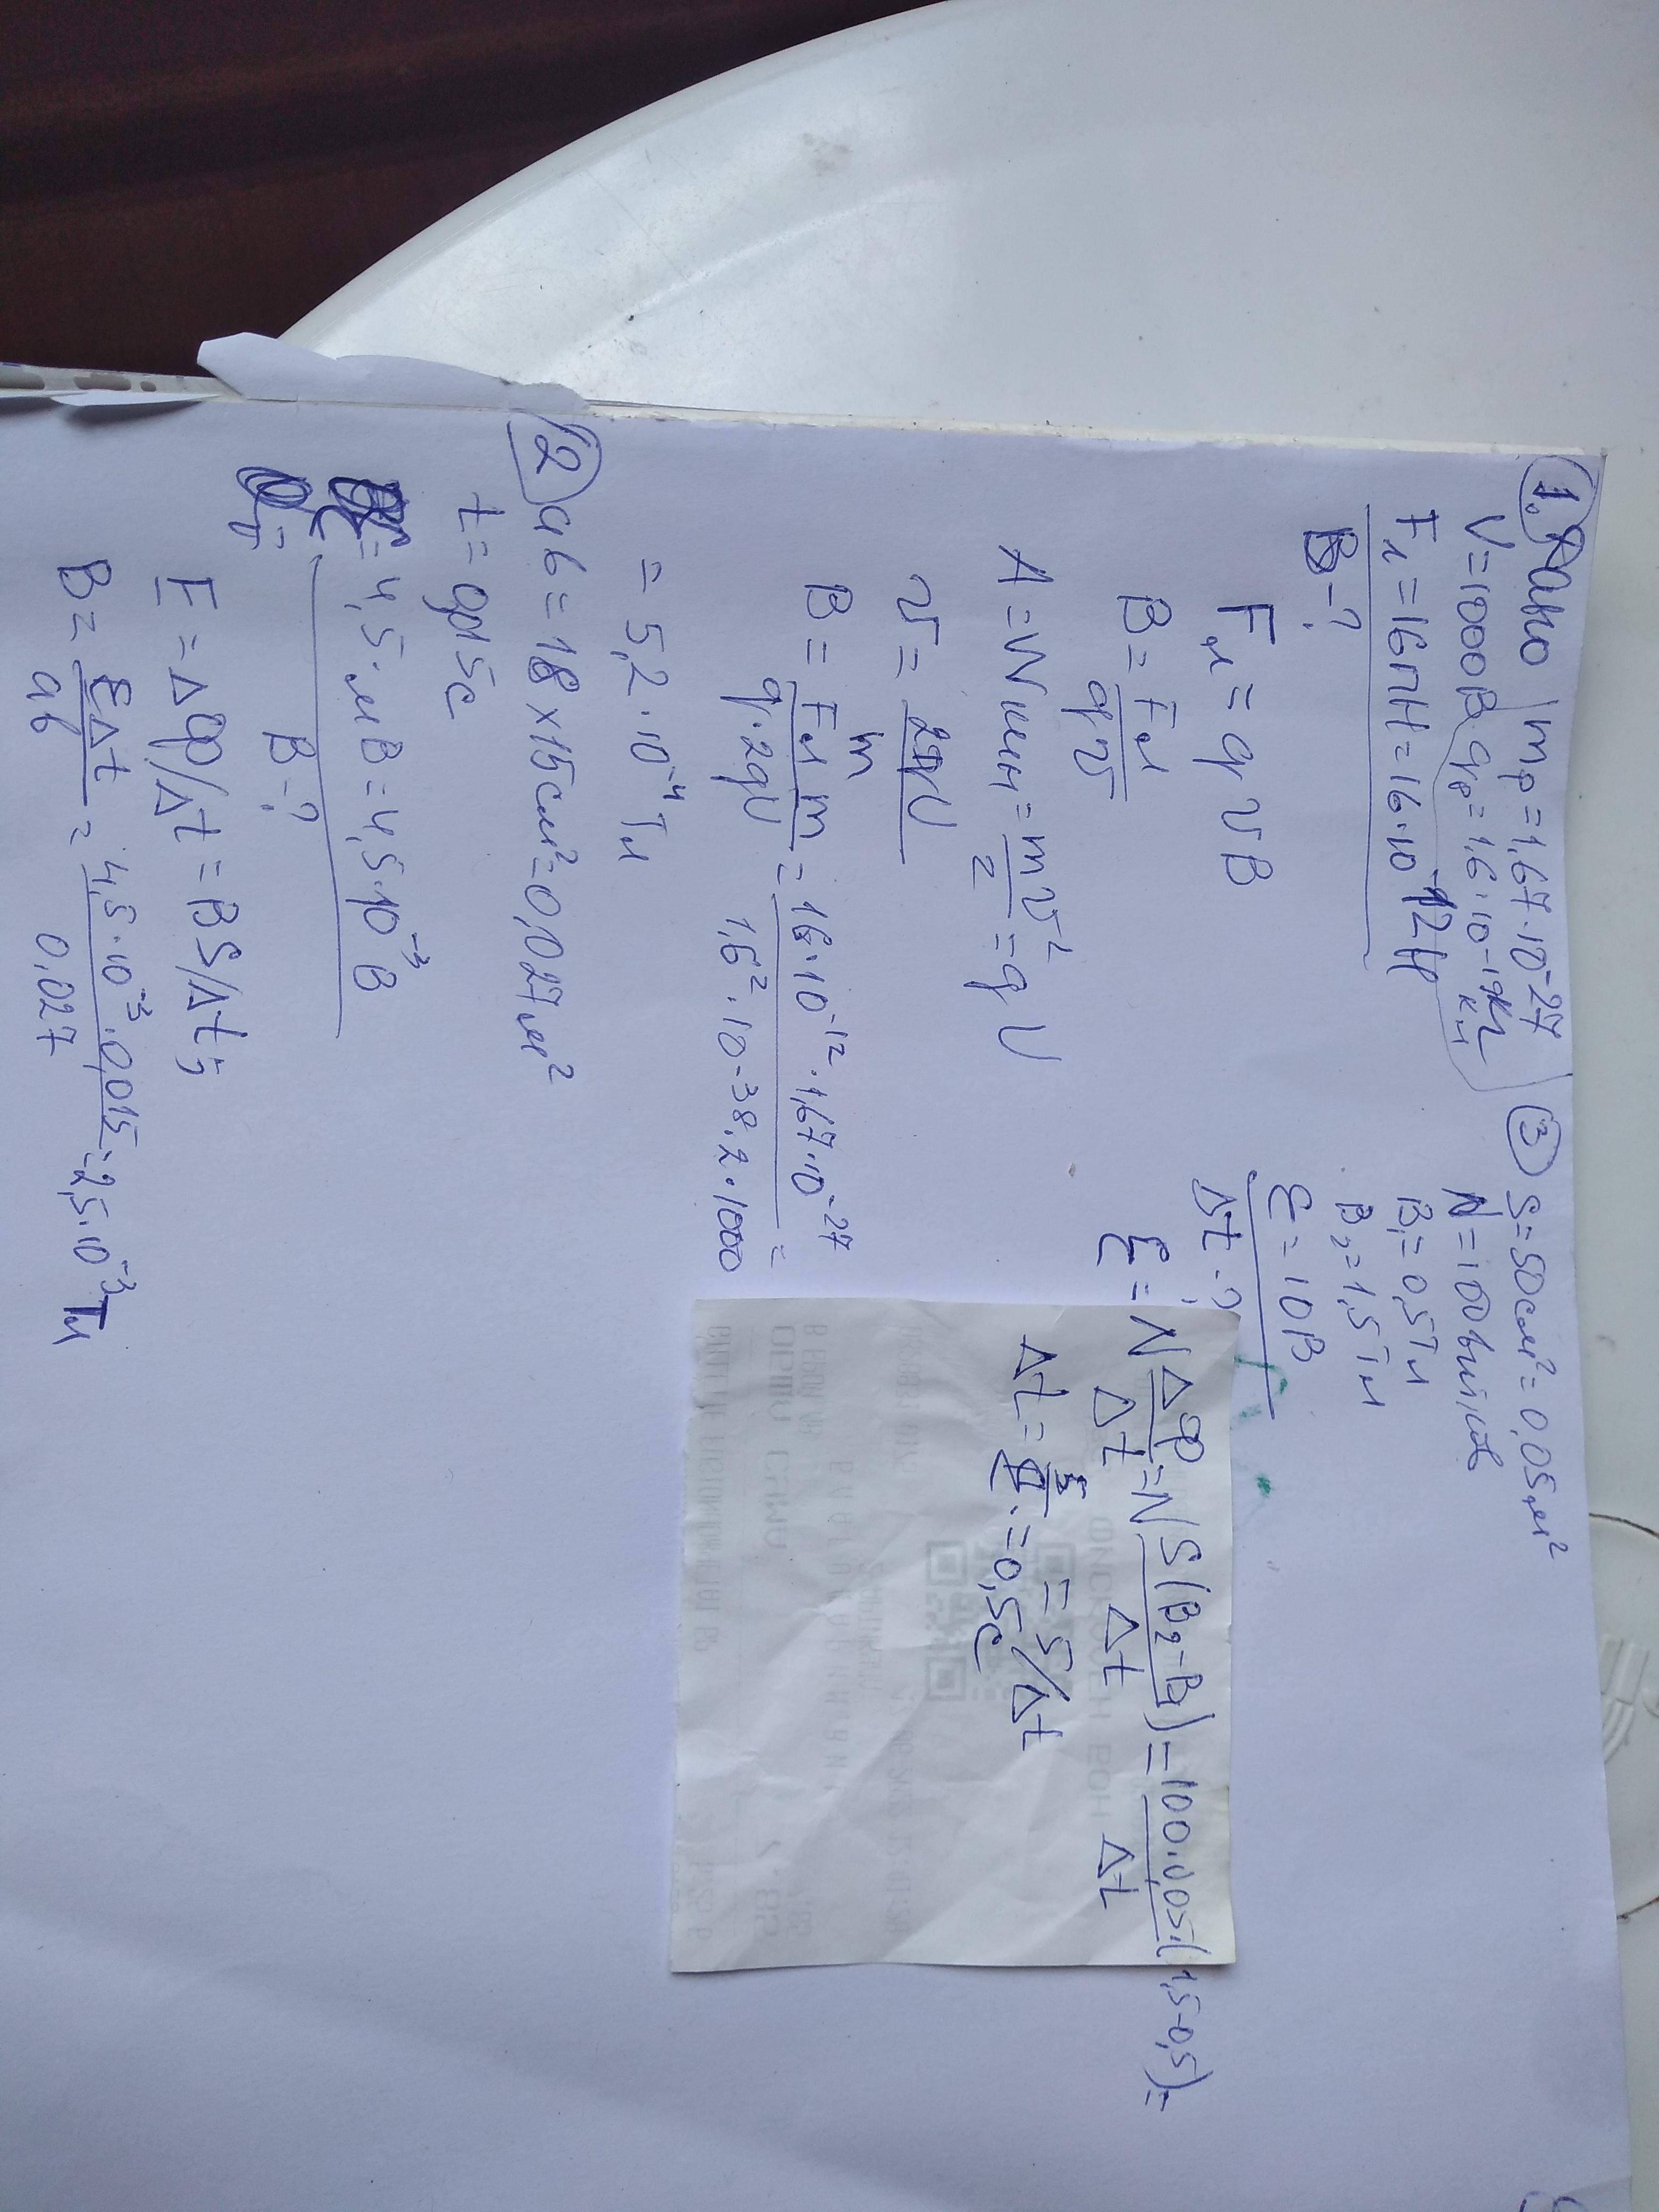 1. Дано
U=1000В
Fл=16пН=16·10⁻¹²Н
B-?
mp=1,67·10⁻²⁷
qp=1,6·10⁻¹⁹Кл
Fл=qvB
B=Fл/qv
A=Wкин=mv²/2=qU
v=2qU/m
B=Fл m/q·2qU=16·10⁻¹²·1,67·10⁻²⁷/1,6²·10⁻³⁸·2·1000=
=5,2·10⁻⁴Тл
2 ab=18×15см²=0,027м²
t=0,015с
=4,5мВ=4,5·10⁻³В
B-?
E=Δφ/Δt=BS/Δt;
B=EΔt/ab=4,5·10⁻³·0,015/0,027=2,5·10⁻³Тл
3 S=50см²=0,05м²
N=100витків
B₁=0,5Тл
B₂=1,5Тл
ℰ=10В
Δt-?
ℰ=NΔφ/Δt=NS(B₂-B₁)/Δt=100·0,05·(1,5-0,5)/Δt=
=5/Δt
Δt=5/ℰ=0,5с